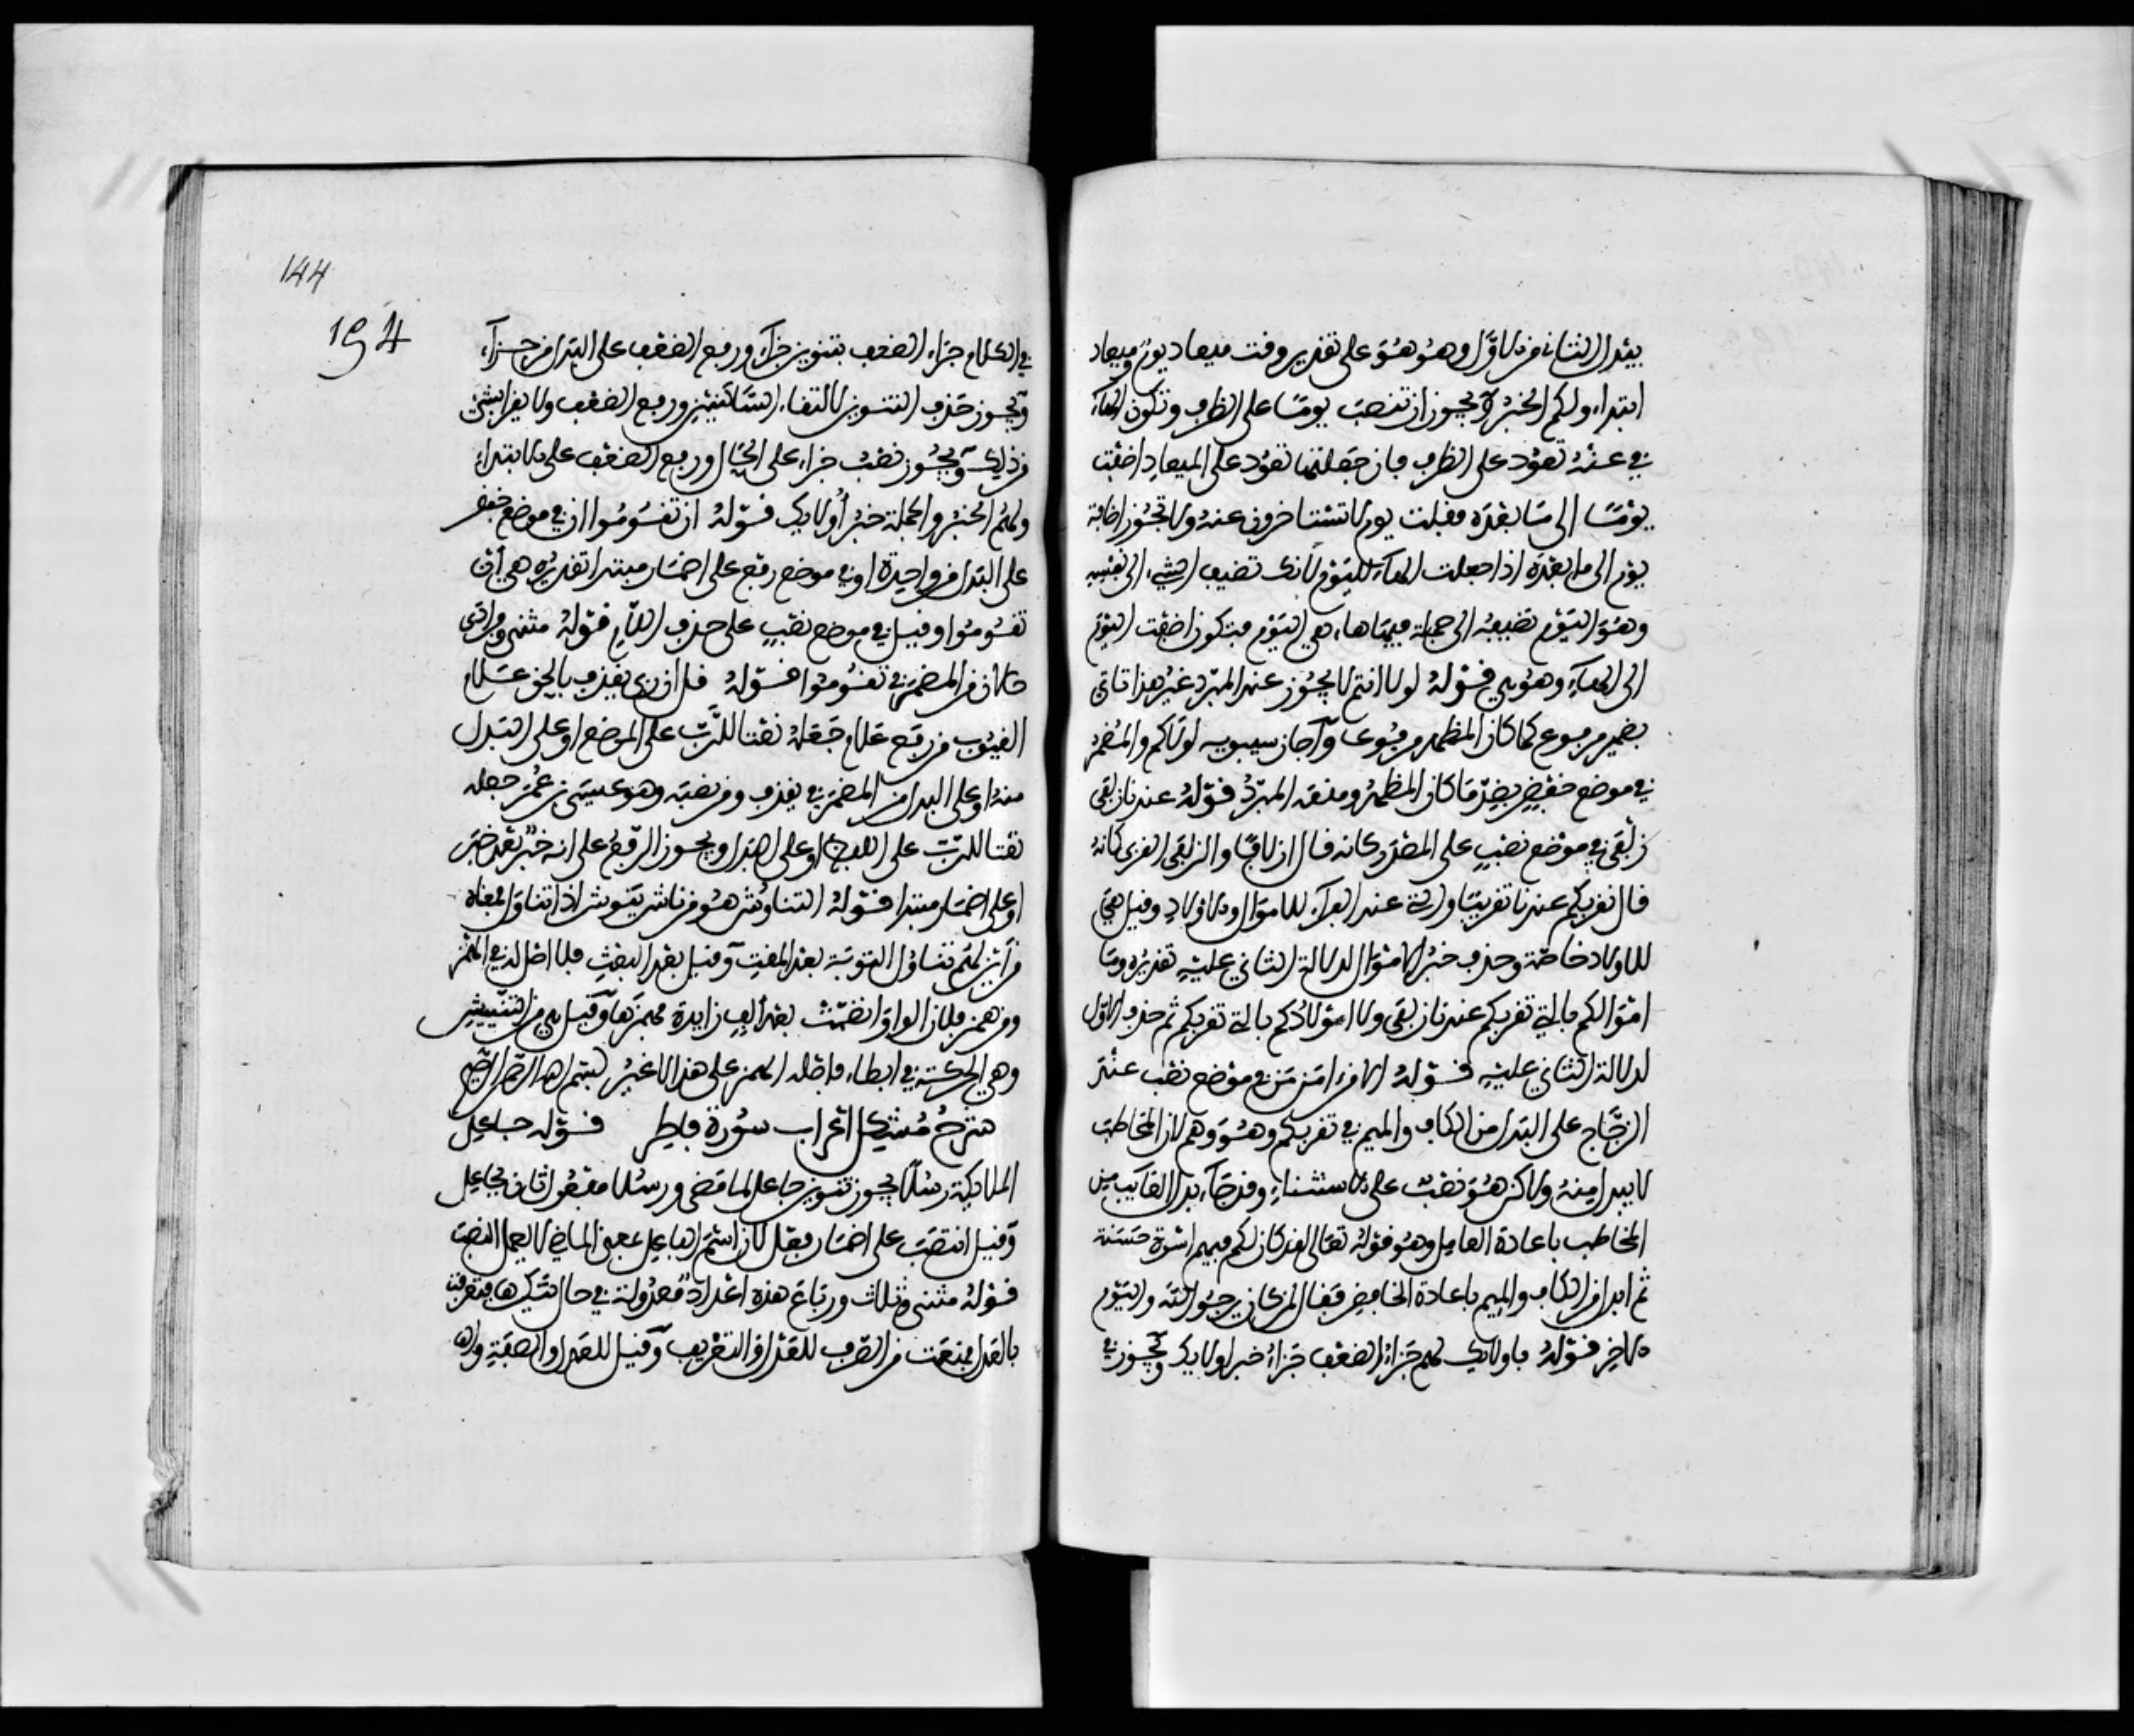 يبدل الثاني من الاول وهو هو على تقدير وقت ميعاد يوم وميعاد
ابتداء ولكم الخبر ويجوز ان تنصب يوما على الظرف وتكون الهاء
في عنه تعود على الظرف فان جعلتها تعود على الميعاد اضفت
يوما الى ما بعده فقلت يوم لا تستاخرون عنه ولا تجوز اضافة
يوم الى ما بعده اذا جعلت الهاء لليوم لانك تضيف الشيء الى نفسه
وهو اليوم تضيفه الى جملة فيها هاء هي اليوم فتكون اضفت اليوم
الى الهاء وهو هي قوله لولا انتم لا يجوز عند المبرد غير هذا تاتي
بضمير مرفوع كما كان المظهر مرفوعا واجاز سيبويه لولاكم والمضمر
في موضع خفض بضد ما كان المظهر ومنعه المبرد قوله عندنا زلفى
زلفى في موضع نصب على المصدر كانه قال ازلافا والزلفى القربى كانه
قال تقربكم عندنا تقريبا والتي عند الفراء للاموال والاولاد وقيل هي
للاولاد خاصة وحذف خبر الاموال لدلالة الثاني عليه تقديره وما
اموالكم بالتي تقربكم عندنا زلفى ولا اولادكم بالتي تقربكم ثم حذف الاول
لدلالة الثاني عليه قوله الا من امن من في موضع نصب عند
الزجاج على البدل من الكاف والميم في تقربكم وهو وهم لان المخاطب
لا يبدل منه ولاكن هو نصب على الاستثناء وقد جاء بدل الغايب من
المخاطب باعادة العامل وهو قوله تعالى لقد كان لكم فيهم اسوة حسنة
ثم ابدل من الكاف والميم باعادة الخافض فقال لمن كان يرجو الله واليوم
الاخر قوله فاولايك لهم جزاء الضعف جزاء خبر اولايك ويجوز في
144
194
في الكلام جزاء الضعف بتنوين جزاء ورفع الضعف على البدل من جزاء
ويجوز حذف التنوين لالتقاء الساكنين ورفع الضعف ولا يقرا بشيء
من ذلك ويجوز نصب جزاء على الحال ورفع الضعف على الابتداء
ولهم الخبر والجملة خبر أولايك قوله ان تقوموا ان في موضع خفض
على البدل من واحدة او في موضع رفع على اضمار مبتدا تقديره هي أن
تقوموا وقيل في موضع نصب على حذف اللام قوله مثنى وفرادى
حالان من المضمر في تقوموا قوله قل ان ربي يقذف بالحق علام
الغيوب من رفع علام جعله نعتا للرب على الموضع او على البدل
منه او على البدل من المضمر في يقذف ومن نصبه وهو عيسى بن عمر جعله
نعتا للرب على اللفظ او على البدل ويجوز الرفع على انه خبر بعد خبر
او على اضمار مبتدا قوله التناوش هو من ناش ينوش اذا تناول فمعناه
من أين لهم تناول التوبة بعد الموت وقيل بعد البعث فلا اصل له في الهمز
ومن همز فلان الواو انضمت بعد ألف زايدة فهمزها وقيل هي من النئيش
وهي الحركة في ابطاء فاصله الهمز على هذا لا غير بسم الله الرحمن الرحيم
شرح مشكل اعراب سورة فاطر قوله جاعل
الملايكة رسلا يجوز تنوين جاعل لما مضى ورسلا مفعول ثان لجاعل
وقيل انتصب على اضمار فعل لان اسم الفاعل بمعنى الماضي لا يعمل النصب
قوله مثنى وثلاث ورباع هذه اعداد معدولة في حال تنكيرها فتعرفت
بالعدل فمنعت من الصرف للعدل والتعريف وقيل للعدل والصفة والفا